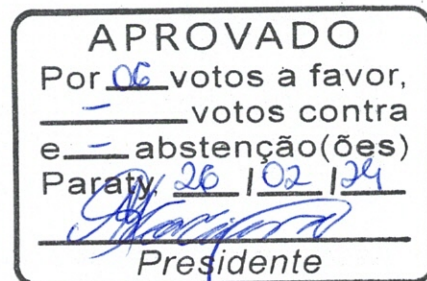 APROVADO
Por 06 votos a favor,
- votos contra
e - abstenção(ões)
Paraty, 26 / 02 / 24
Presidente